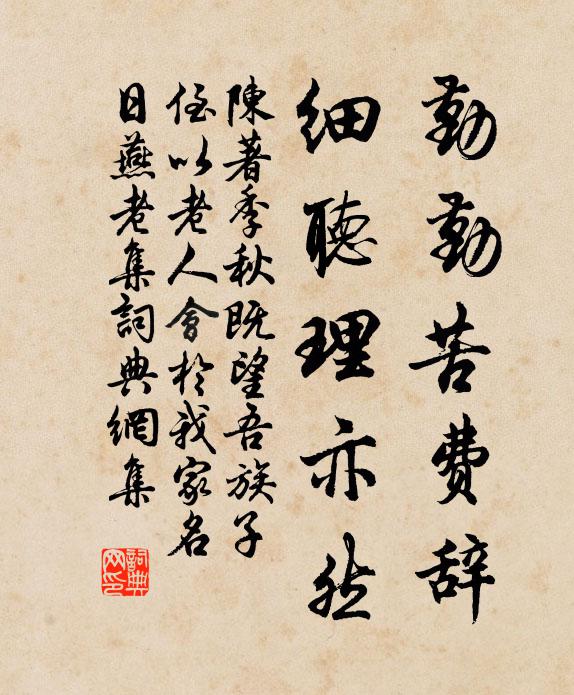 勤勤苦費辞
細聽理亦然
陳著季秋既望吾族子
侄以老人會於我家名
日燕老集詞典網集
詞典网印